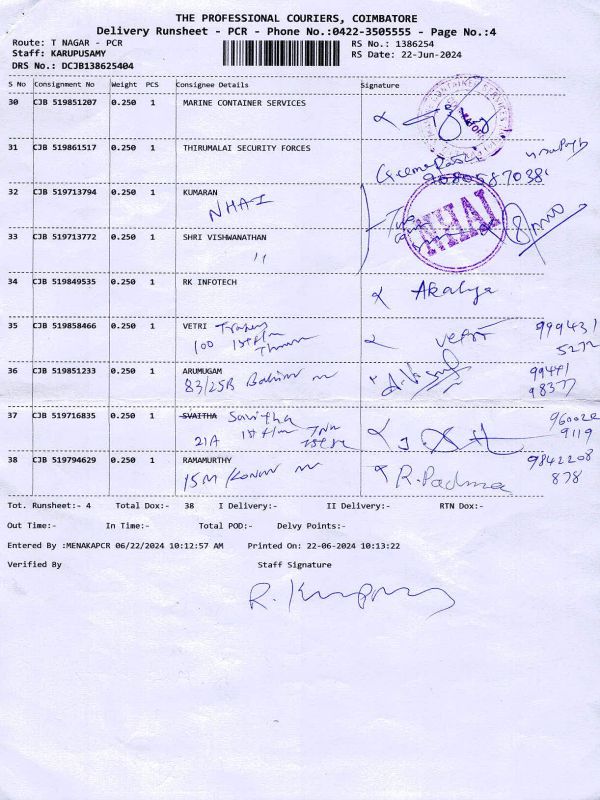 THE PROFESSIONAL COURIERS, COIMBATORE
Delivery Runsheet - PCR - Phone No.:0422-3505555 - Page No.:4
Route: T NAGAR - PCR
RS No.: 1386254
Staff: KARUPUSAMY
RS Date: 22-Jun-2024
DRS No.: DCJB138625404
S No Consignment No Weight PCS Consignee Details Signature
30 CJB 519851207 0.250 1 MARINE CONTAINER SERVICES
31 CJB 519861517 0.250 1 THIRUMALAI SECURITY FORCES
32 CJB 519713794 0.250 1 KUMARAN
NHAI
NHAI
33 CJB 519713772 0.250 1 SHRI VISHWANATHAN
"
34 CJB 519849535 0.250 1 RK INFOTECH
Akalya
35 CJB 519858466 0.250 1 VETRI
100 1st
vetri 999431
5272
36 CJB 519851233 0.250 1 ARUMUGAM
83/25B
98377
37 CJB 519716835 0.250 1 SVAITHA Savitha
21A
9119
38 CJB 519794629 0.250 1 RAMAMURTHY 9842208
15M
R. Padma 878
Tot. Runsheet:- 4 Total Dox:- 38 I Delivery:- II Delivery:- RTN Dox:-
Out Time:- In Time:- Total POD:- Delvy Points:-
Entered By :MENAKAPCR 06/22/2024 10:12:57 AM Printed On: 22-06-2024 10:13:22
Verified By Staff Signature